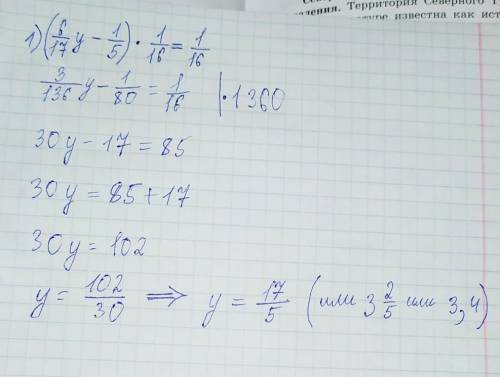 Сев
ления. Территория Северного
известна как ист
1) (6/17 y - 1/5) · 1/16 = 1/16
3/136 y - 1/80 = 1/16 | · 1360
30y - 17 = 85
30y = 85 + 17
30y = 102
y = 102/30 ⇒ y = 17/5 (или 3 2/5 или 3,4)